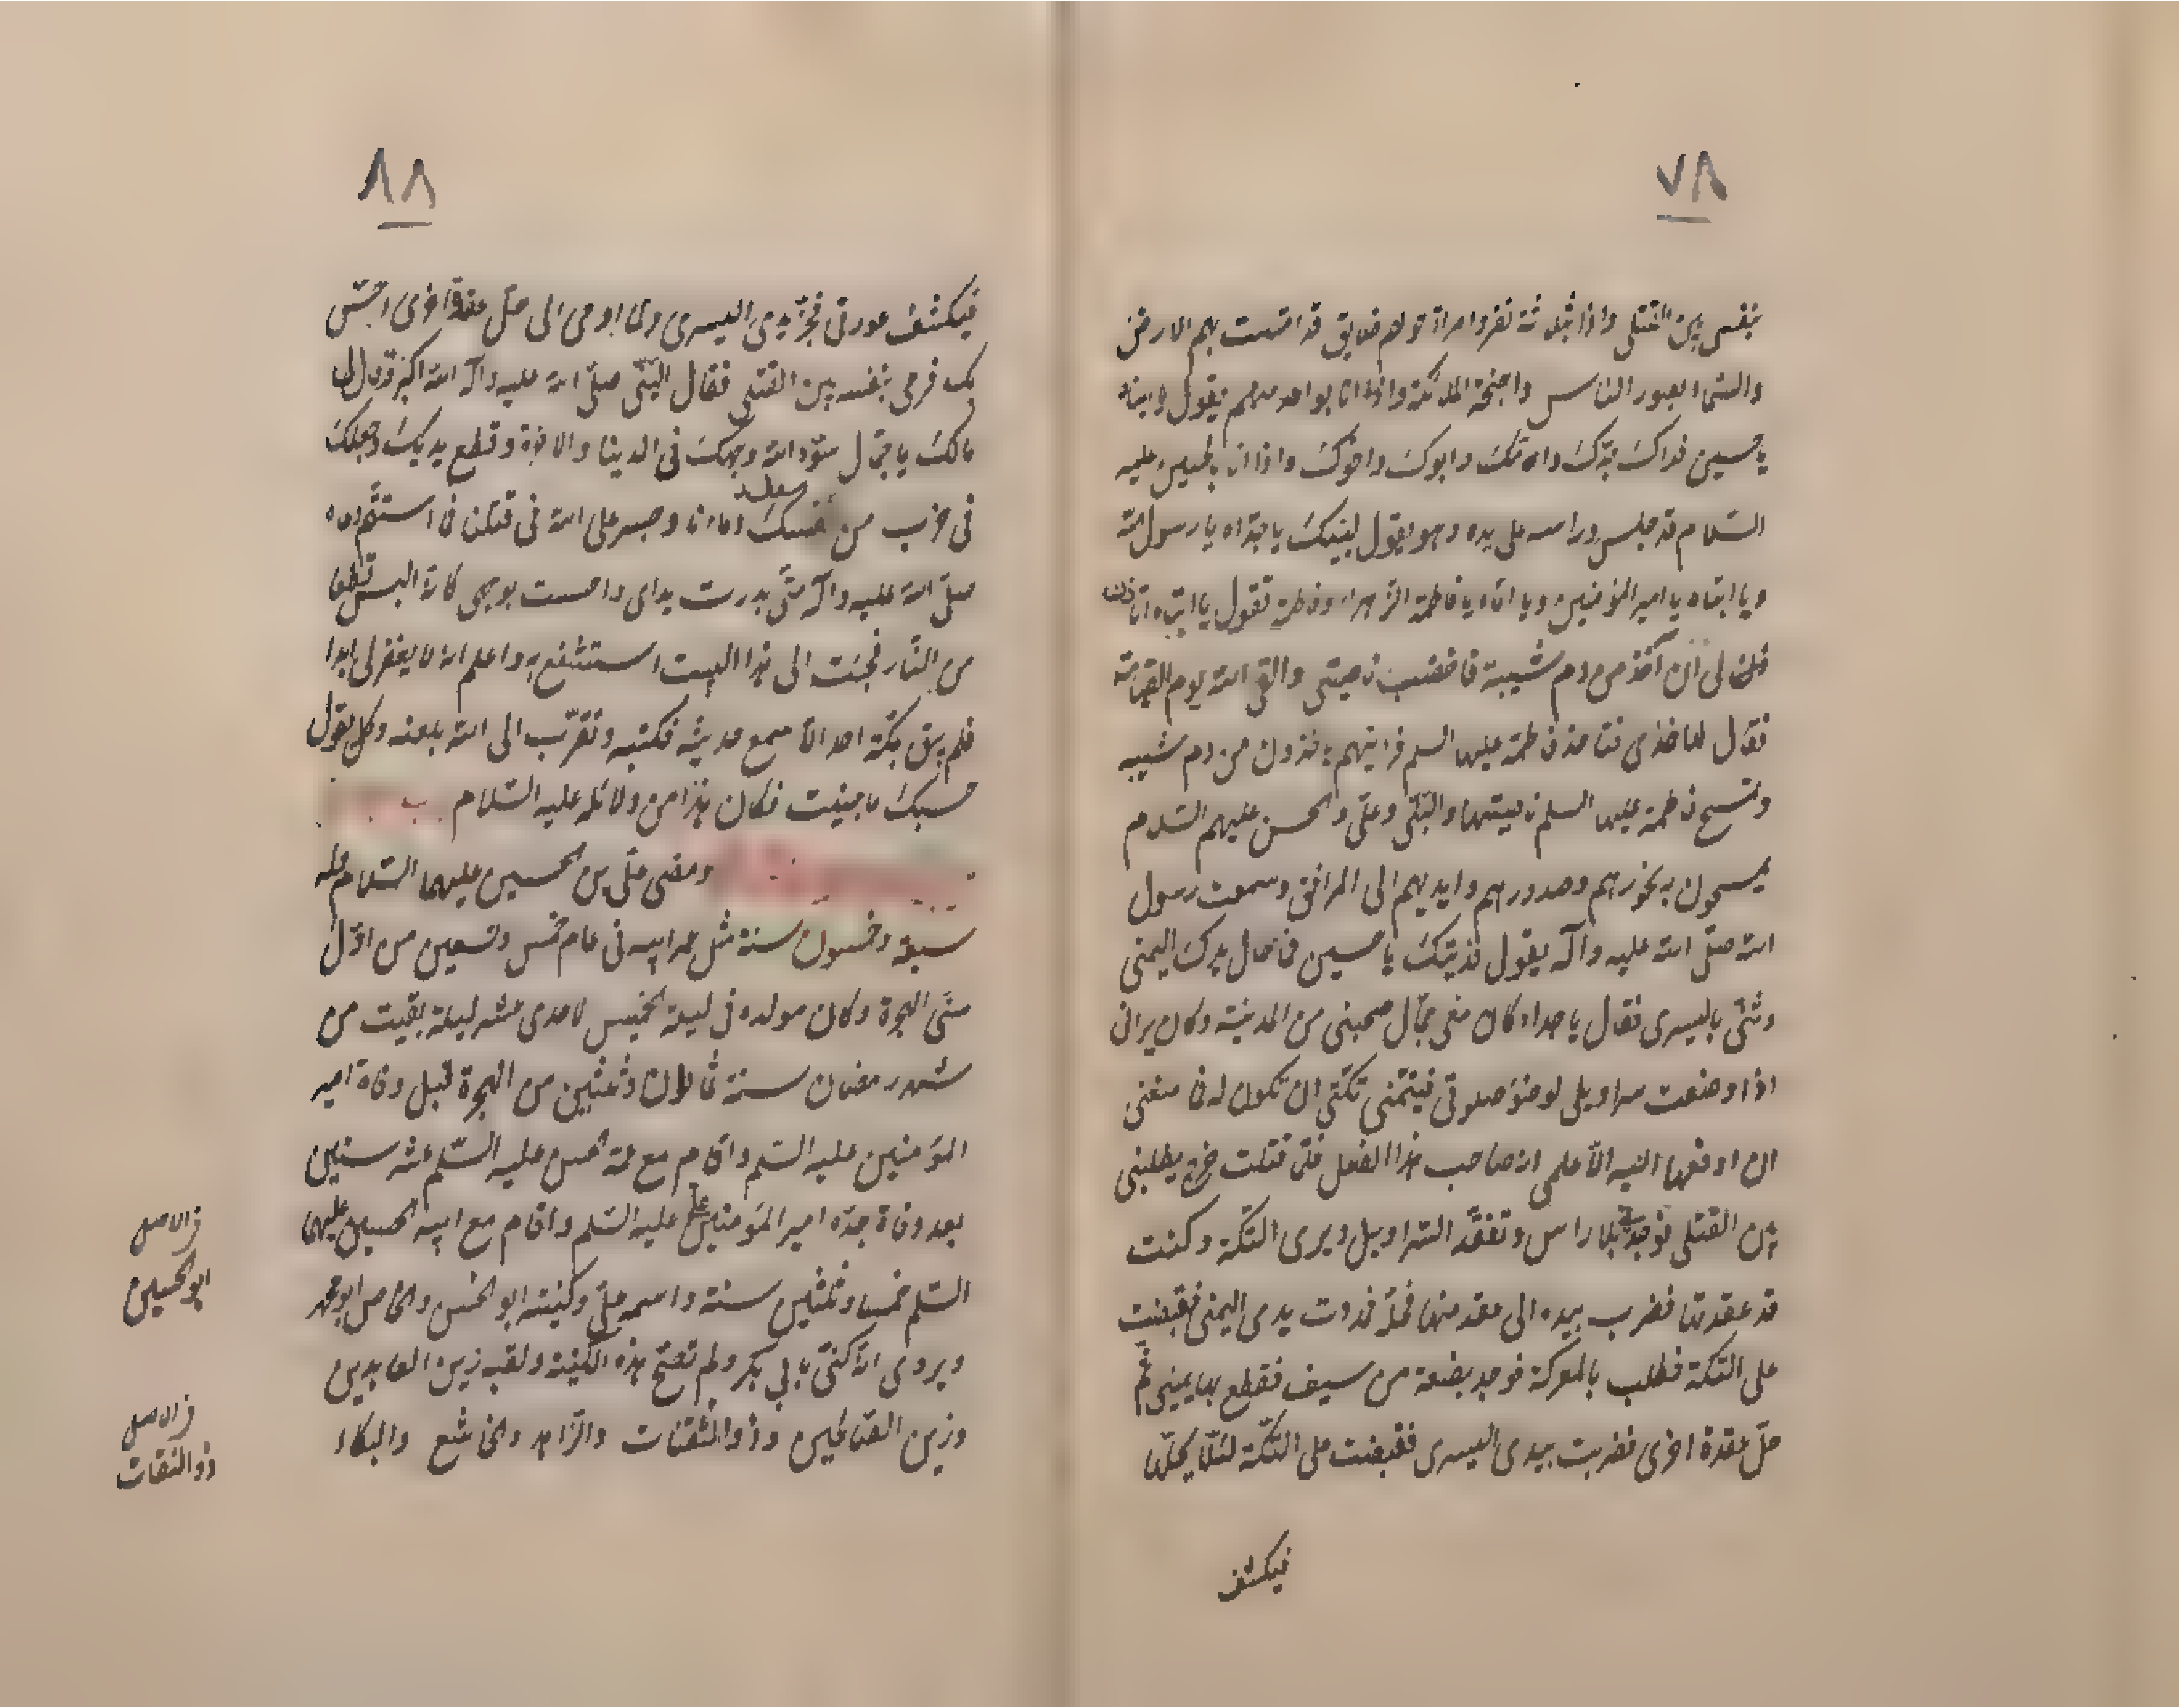 ٧٨
بنفسى بين القتلى واذا بثلاثة نفر وامراة حولهم خلايق قد امتلئت بهم الارض
والسماء بصور الناس واجنحة الملائكة واذا انا بواحد منهم يقول وابناه
يا حسين فداك جدك وامك وابوك واخوك واذا انا بالحسين عليه
السلام قد جلس وراسه على بدنه وهو يقول لبيك يا جداه يا رسول الله
ويا ابتاه يا امير المؤمنين ويا اماه يا فاطمة الزهراء وفاطمة تقول يا ابتاه اتاذن
لى ان آخذ من دم شيبه فاخضب ناصيتى والقى الله يوم القيامة
فقال لها خذى فتاخذ فاطمة عليها السلم فرايتهم ياخذون من دم شيبه
وتمسح فاطمة عليها السلم ناصيتها والنبى وعلى والحسن عليهم السلام
يمسحون به نحورهم وصدورهم وايديهم الى المرافق وسمعت رسول
الله صلى الله عليه وآله يقول فديتك يا حسين فاحال يدك اليمنى
وثنى باليسرى فقال يا جداه كان معى جمال صحبنى من المدينة وكان يرانى
اذا وضعت سراويلى لوضوء صلوتى فيتمنى تكتى ان تكون له فما منعنى
ان ادفعها اليه الا علمى انه صاحب هذا الفعل فلما قتلت خرج يطلبنى
بين القتلى فوجدنى بلا راس وتفقد السراويل ويرى التكة وكنت
قد عقدتها فضرب بيده الى عقد منها فحله فمددت يدى اليمنى فقبضت
على التكة فطلب بالمعركة فوجد بضعة من سيف فقطع بها يمينى ثم
حل عقدة اخرى فضربت بيدى اليسرى فقبضت على التكة لئلا يحلها
فيكشف
٨٨
فيكشف عورتى فجز يدى اليسرى ولما اومى الى حل عقدة اخرى احس
بك فرمى بنفسه بين القتلى فقال النبى صلى الله عليه وآله الله اكبر وقال لى
مالك يا جمال سود الله وجهك فى الدنيا والاخرة وقطع يديك وجعلك
فى حزب من سفك دماءنا وجسر على الله فى قتلنا فما استتم دعاه
صلى الله عليه وآله حتى بدرت يداى واحسست بوجهى كانه البس قطعا
من النار فجئت الى هذا البيت استشفع به واعلم انه لا يغفر لى ابدا
فلم يبق بمكة احد الا سمع حديثه فكتبه وتقرب الى الله بلعنه وكل يقول
حسبك ما جنيت فكان هذا من دلائله عليه السلام
ومضى على بن الحسين عليهما السلام وله
سبعة وخمسون سنة مثل عمر ابيه فى عام خمس وتسعين من اول
سنى الهجرة وكان مولده فى ليلة الخميس لاحدى عشر ليلة بقيت من
شهر رمضان سنة ثمان وثلثين من الهجرة قبل وفاة امير
المؤمنين عليه السلم واقام مع عمه الحسن عليه السلم عشر سنين
بعد وفاة جده امير المؤمنين على عليه السلم واقام مع ابيه الحسين عليهما
السلم خمسا وثلثين سنة واسمه على وكنيته ابو الحسن والخاص ابو محمد
ويروى انه كنى بابى بكر ولم تصح هذه الكنية ولقبه زين العابدين
وزين الصالحين وذو الثفنات والزاهد والخاشع والبكاء
فى الاصل
ابو الحسين
فى الاصل
ذو الثقات